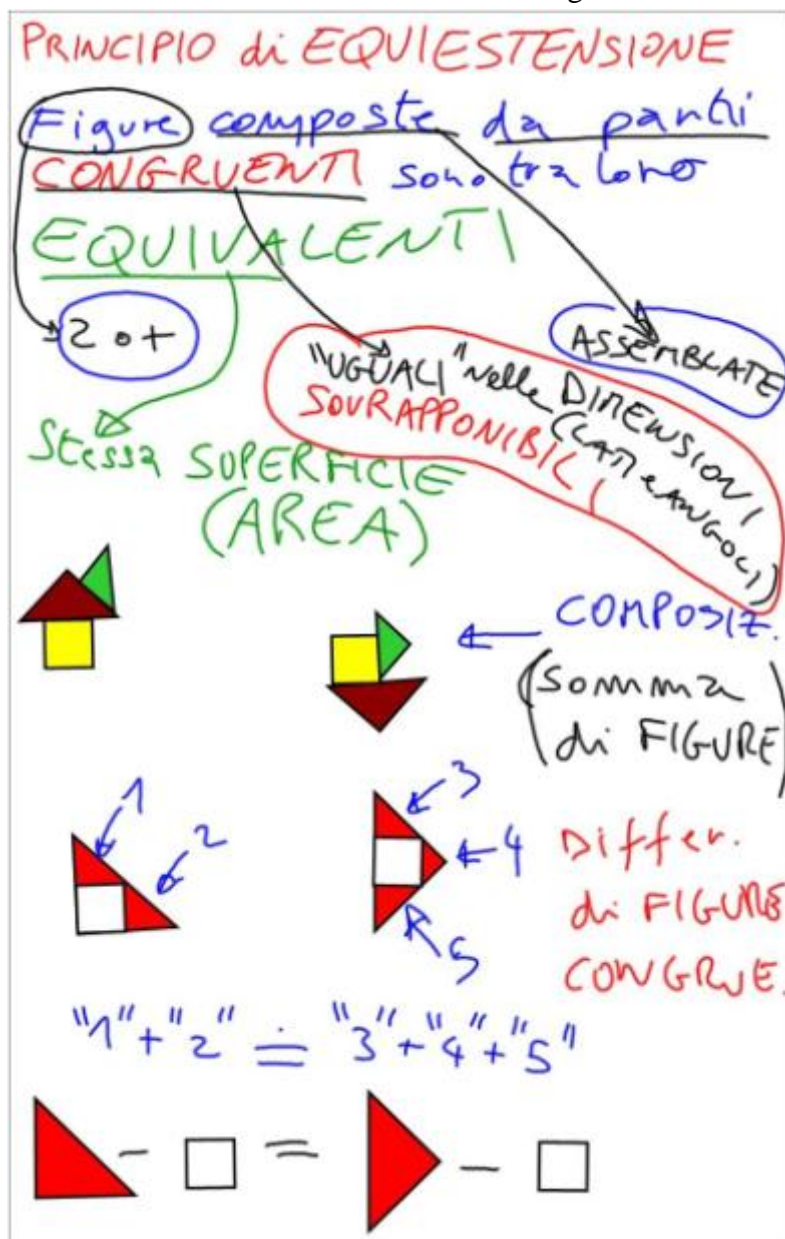 PRINCIPIO di EQUIESTENSIONE
Figure composte da parti
CONGRUENTI sono tra loro
EQUIVALENTI
2 o +
ASSEMBLATE
"UGUALI" nelle DIMENSIONI
(LATI e ANGOLI)
SOVRAPPONIBILI
Stessa SUPERFICIE
(AREA)
COMPOSIZ.
(somma
di FIGURE)
1
2
3
4
5
Differ.
di FIGURE
CONGRUE.
"1" + "2" ≐ "3" + "4" + "5"
- = -